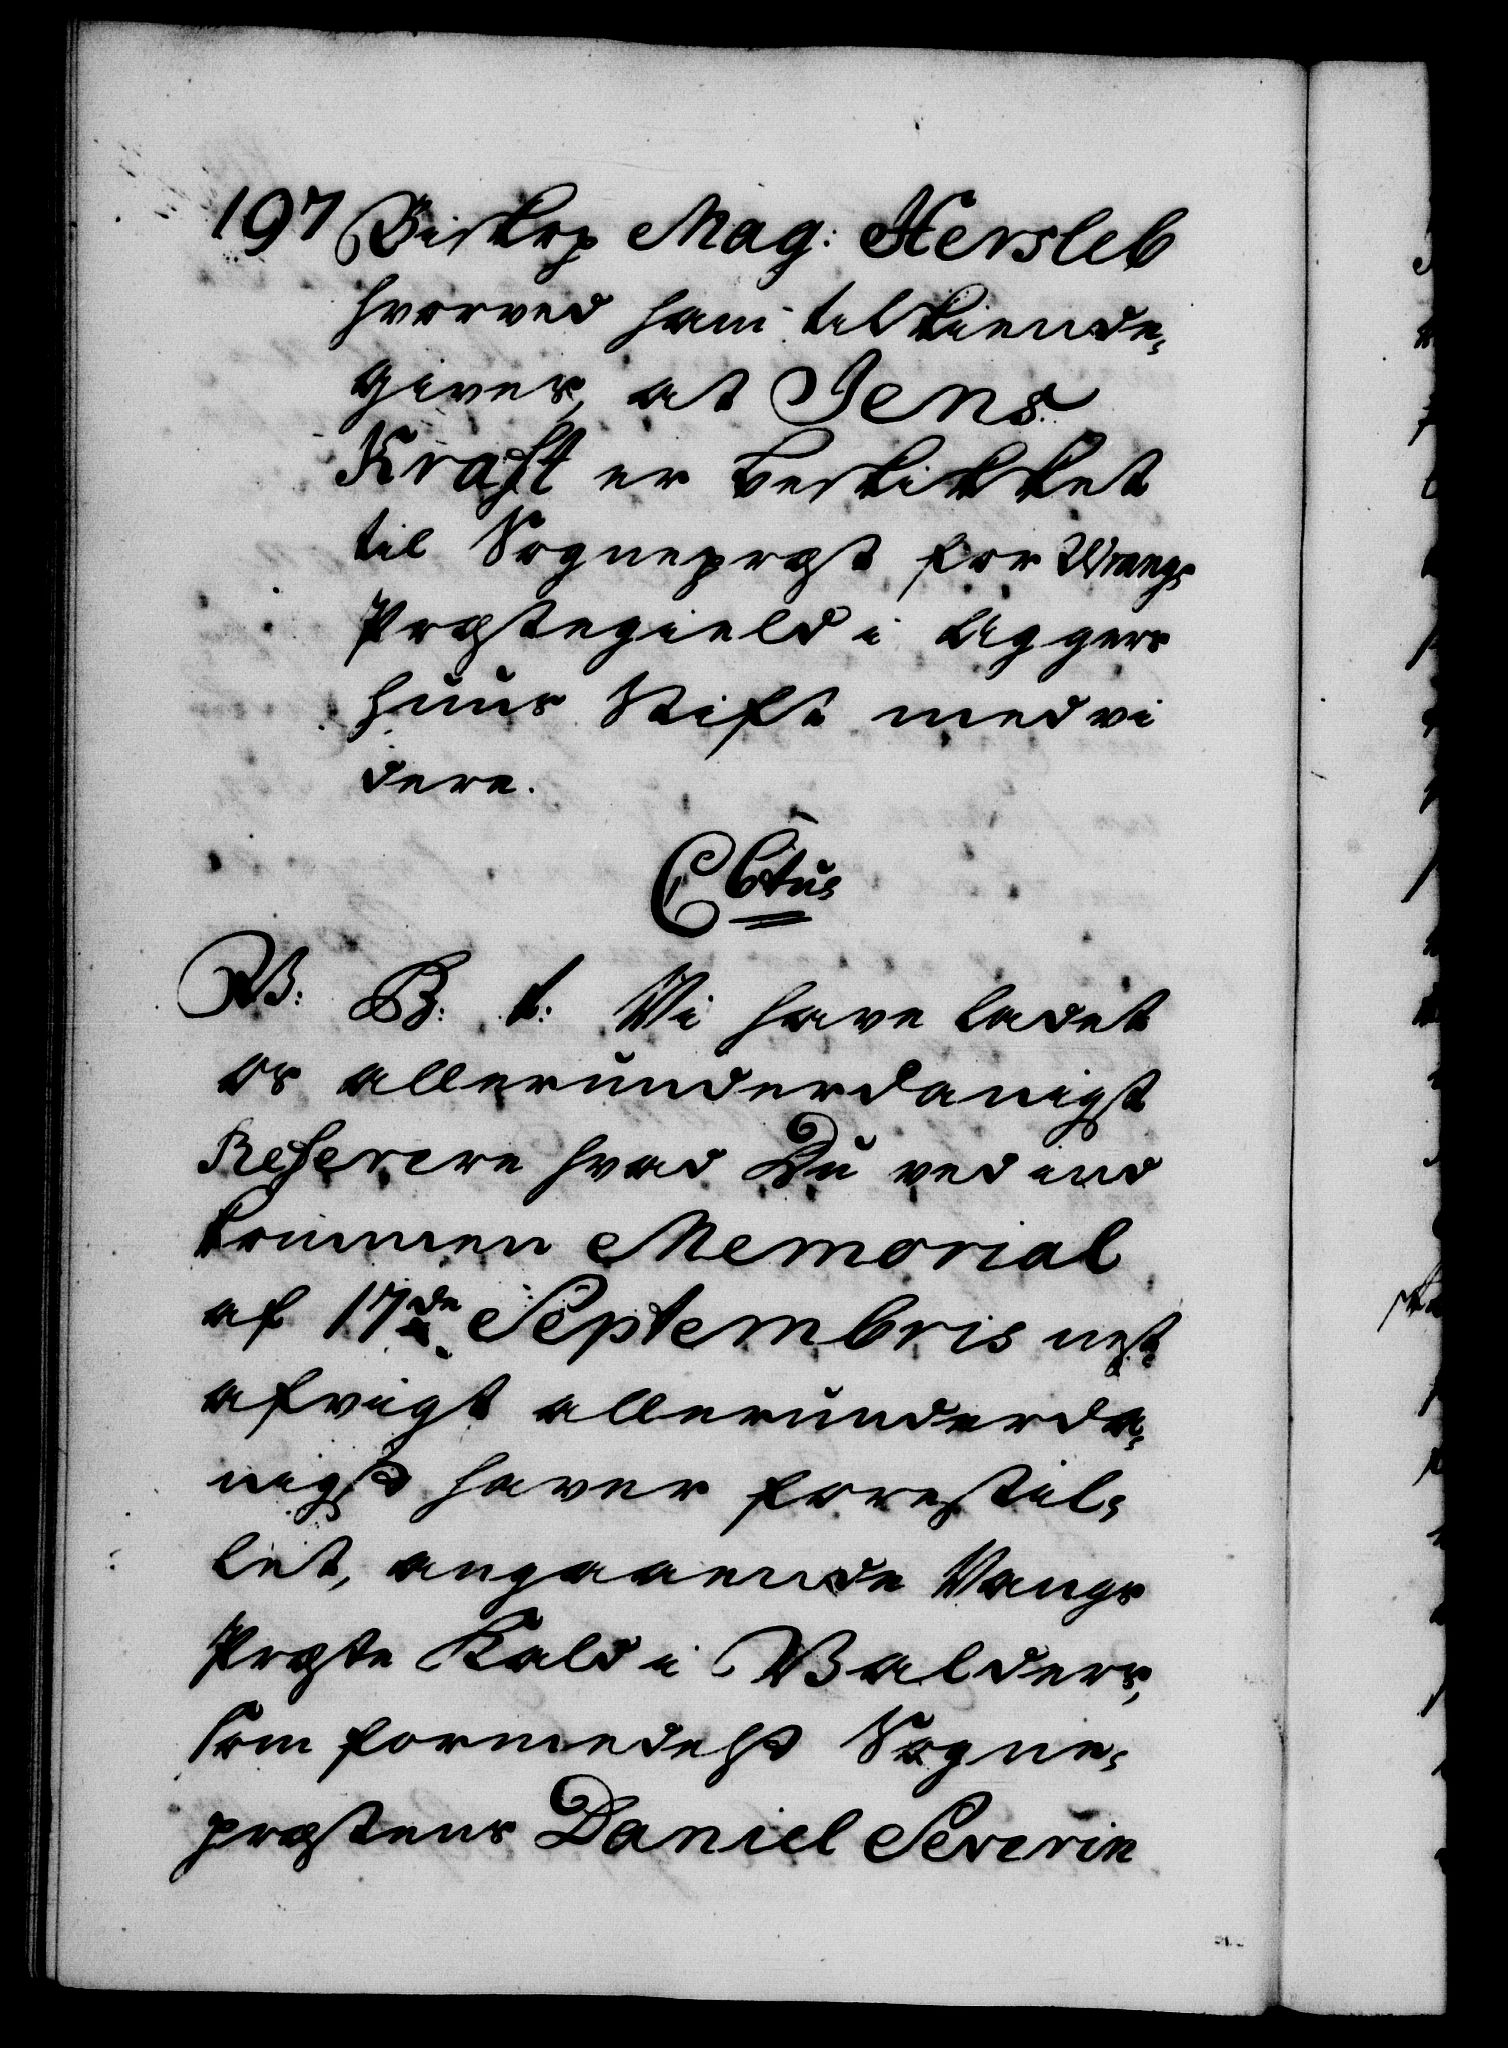 197 Biskop Mag: Hersleb
hvorved ham tilkiende-
gives, at Jens
Kraft er beskikket
til Sognepræst for Wrangs
Præstegield i Agger⸗
huus Stift med vi
dere.
C 6tus
W. B. t: Vi have ladet
os allerunderdanigst
Referere hvad Du ved ind
kommen Memorial
af 17de Septembris nest
afvigt allerunderda-
nigst haver forestil-
let, angaaende Vangs
Præste Kald i Walders,
som formedelst Sogne-
præstens Daniel Severin